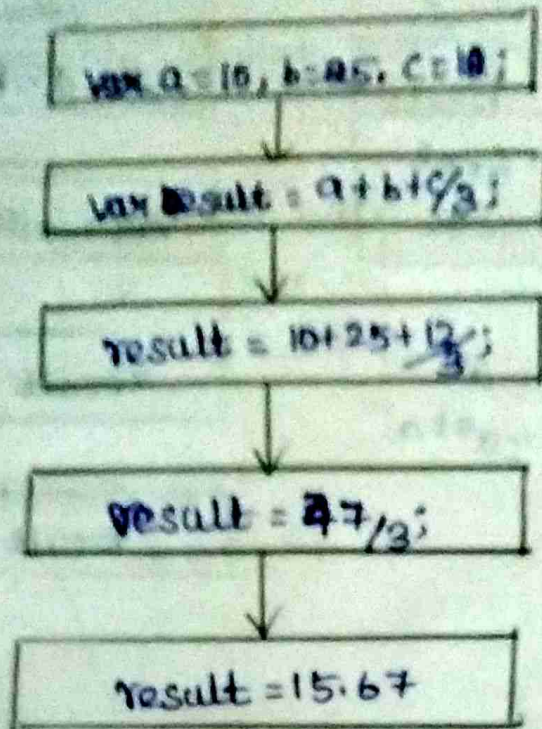 var a = 10, b = 25, c = 12;
var result = a + b + c/3;
result = 10 + 25 + 12/3;
result = 47/3;
result = 15.67